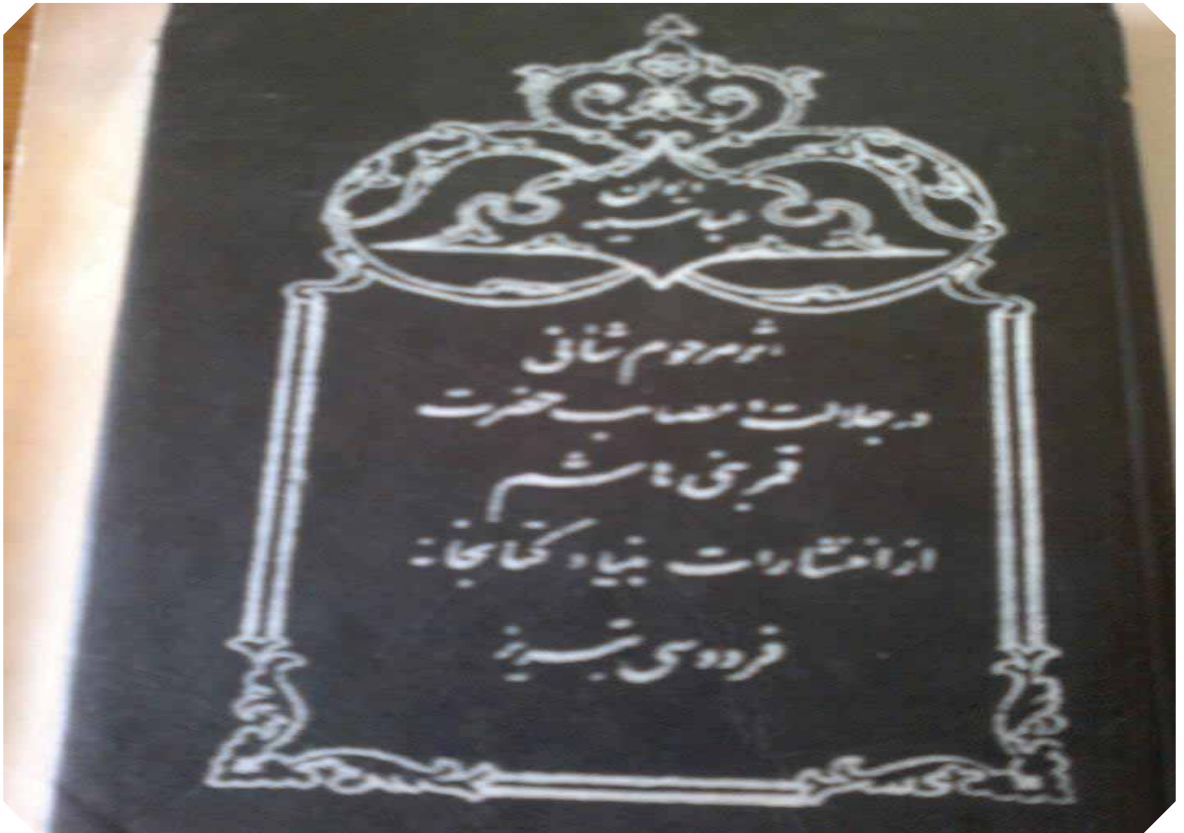 دیوان
عباسیه
اثر مرحوم شافی
در جلالت و مصایب حضرت
قمر بنی هاشم
از انتشارات بنیاد کتابخانه
فردوسی تبریز